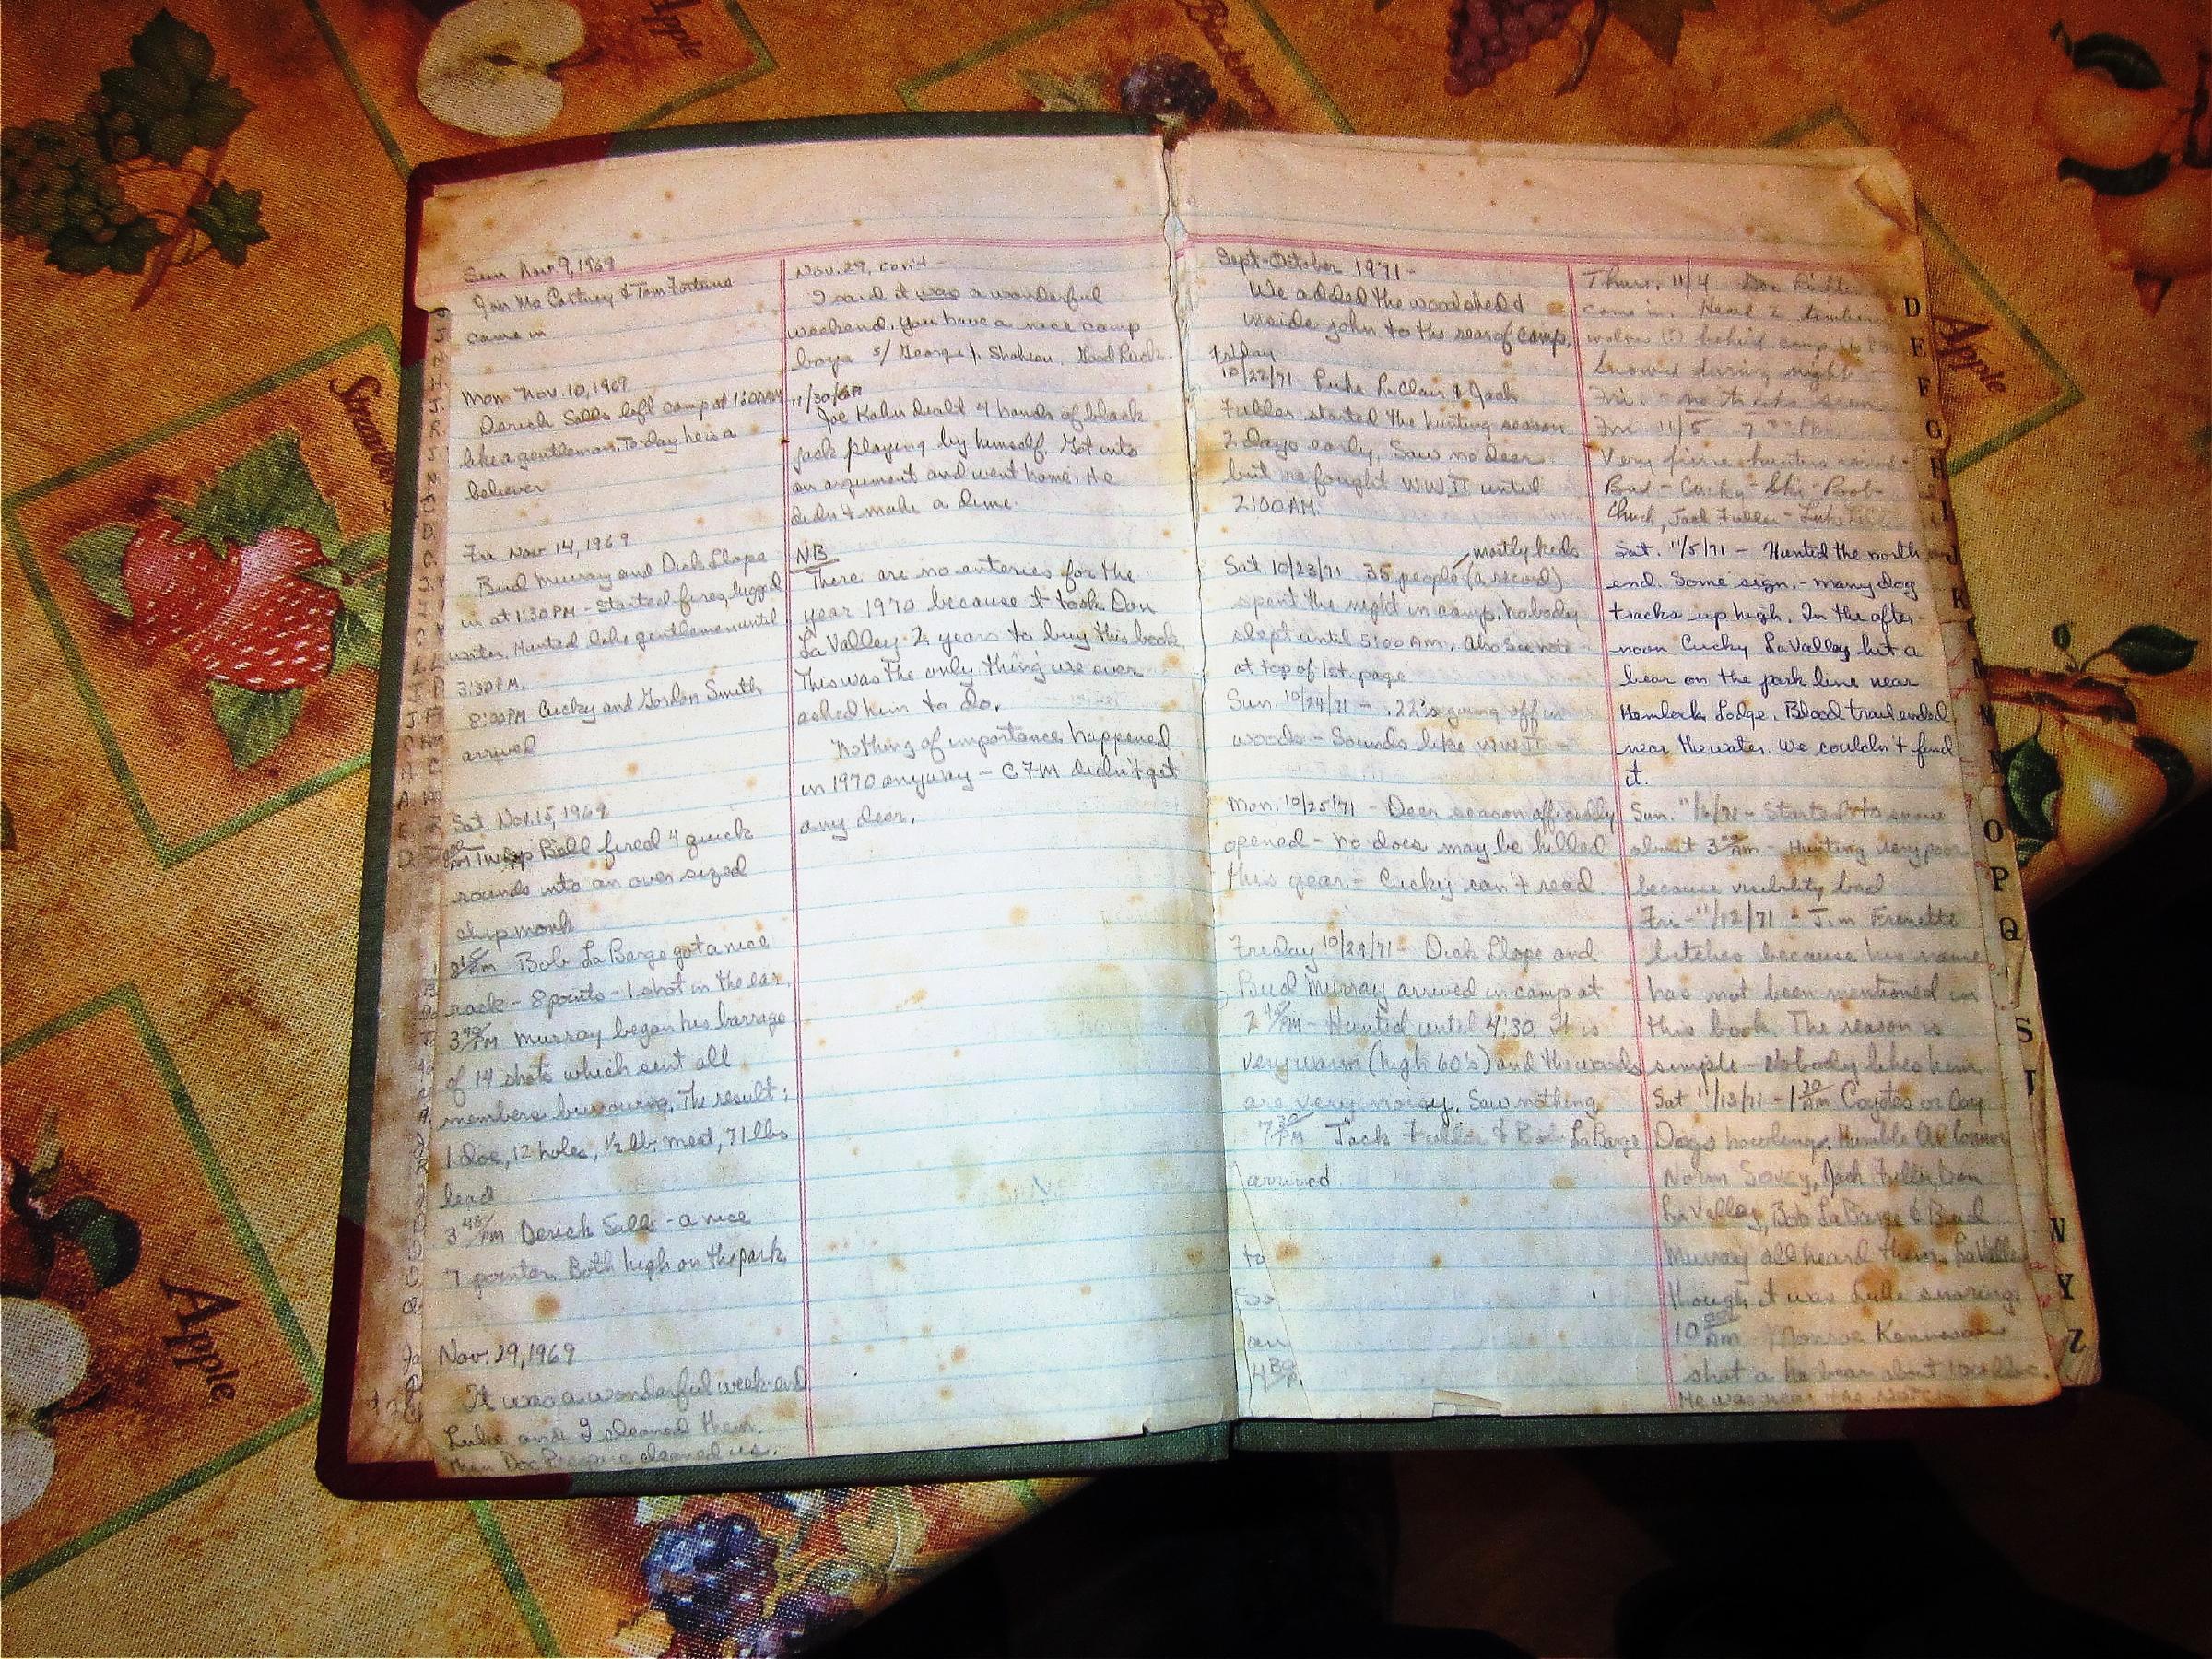 Sun Nov 9, 1969
Jim McCartney & Tom Fortune
came in
Mon Nov. 10, 1969
Derick Salls left camp at
like a gentleman. Today he is a
believer
Fri Nov 14, 1969
Bud Murray and Dick Slope
in at 1:30 PM - Started fires, lugged
water. Hunted like gentlemen until
3:30 PM.
8:00 PM Cucky and Gordon Smith
arrived
Sat. Nov. 15, 1969
AM Bell fired 4 quick
rounds into an over sized
chipmonk
8 15/AM Bob LaBarge got a nice
rack - 8 points - 1 shot in the ear.
3 40/PM Murray began his barrage
of 14 shots which sent all
members burrowing. The result:
1 doe, 12 holes, 1/2 lb. meat, 71 lbs
lead
3 45/PM Derick Salls - a nice
7 pointer. Both high on the park
Nov. 29, 1969
It was a wonderful week-end
Luke and I cleaned them.
Then Doc cleaned us.
Nov. 29, con't -
I said it was a wonderful
weekend. You have a nice camp
boys s/ George J. Shaheen. Good Luck.
11/30/69
Joe Kahn dealt 4 hands of black
jack playing by himself. Got into
an argument and went home. He
didn't make a dime.
NB
There are no enteries for the
year 1970 because it took Don
LaValley 2 years to buy this book
This was the only thing we ever
asked him to do.
Nothing of importance happened
in 1970 anyway - CFM didn't get
any deer.
Sept-October 1971 -
We added the woodshed &
inside john to the rear of camp.
Friday
10/22/71 Luke LeClair & Jack
Fuller started the hunting season
2 days early. Saw no deer
but we fought WWII until
2:00 AM.
mostly kids
Sat. 10/23/71 35 people (a record)
spent the night in camp. Nobody
slept until 5:00 AM. Also see note
at top of 1st. page
Sun. 10/24/71 - .22's going off in
woods - Sounds like WWII -
Mon. 10/25/71 - Deer season officially
opened - no does may be killed
this year - Cucky can't read.
Friday 10/29/71 - Dick Slope and
Bud Murray arrived in camp at
2 45/PM - Hunted until 4:30. It is
very warm (high 60's) and the woods
are very noisy. Saw nothing
7 30/PM Jack Fuller & Bob LaBarge
arrived.
to
so
an
4 30
Thurs. 11/4 Don
came in. Heard 2 timber
wolves (?) behind camp
Snowed during night
Fri - no tracks seen
Fri 11/5 7
Very fierce hunters
Bud - Cucky - Ski - Bob -
Chuck, Jack Fuller - Luke
Sat. 11/5/71 - Hunted the north
end. Some sign. - many dog
tracks up high. In the after-
noon Cucky LaValley hit a
bear on the park line near
Hemlock Lodge. Blood trail ended
near the water. We couldn't find
it.
Sun. 11/6/71 - Started to snow
about 3 AM - Hunting very poor
because visibility bad
Fri - 11/12/71 - Jim Frenette
bitches because his name
has not been mentioned in
this book. The reason is
simple - Nobody likes him
Sat 11/13/71 - 1 30/AM Coyotes or Coy
Dogs howling. Humble Al
Norm Savoy, Jack Fuller, Don
LaValley, Bob LaBarge & Bud
Murray all heard them. LaValley
though it was Luke snoring.
10 AM Monroe
shot a he bear about
He was near
D
E
F
G
H
I
J
K
M
N
O
P
Q
S
T
W
Y
Z
Apple
Blackberry
Strawberry
Apple
Apple